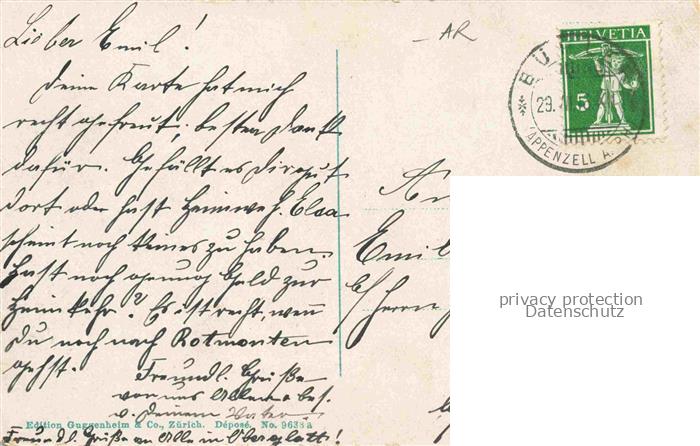 Lieber Emil!
Deine Karte hat mich
recht gefreut, besten Dank
dafür. Gefällt es Dir gut
dort oder hast Heimweh. Elsa
scheint noch keines zu haben.
Hast noch genug Geld zur
Heimkehr? Es ist recht, wenn
Du noch nach Rotmonten
gehst.
Freundl. Grüße
von uns Allen u bes.
v. Deinem Vater
Edition Guggenheim & Co., Zürich. Déposé. No. 9638a
Freundl. Grüße an Alle in Oberglatt!
AR
HELVETIA
5
BÜ
29.
APPENZELL A.
An
Emil
b/ Herrn
privacy protection
Datenschutz